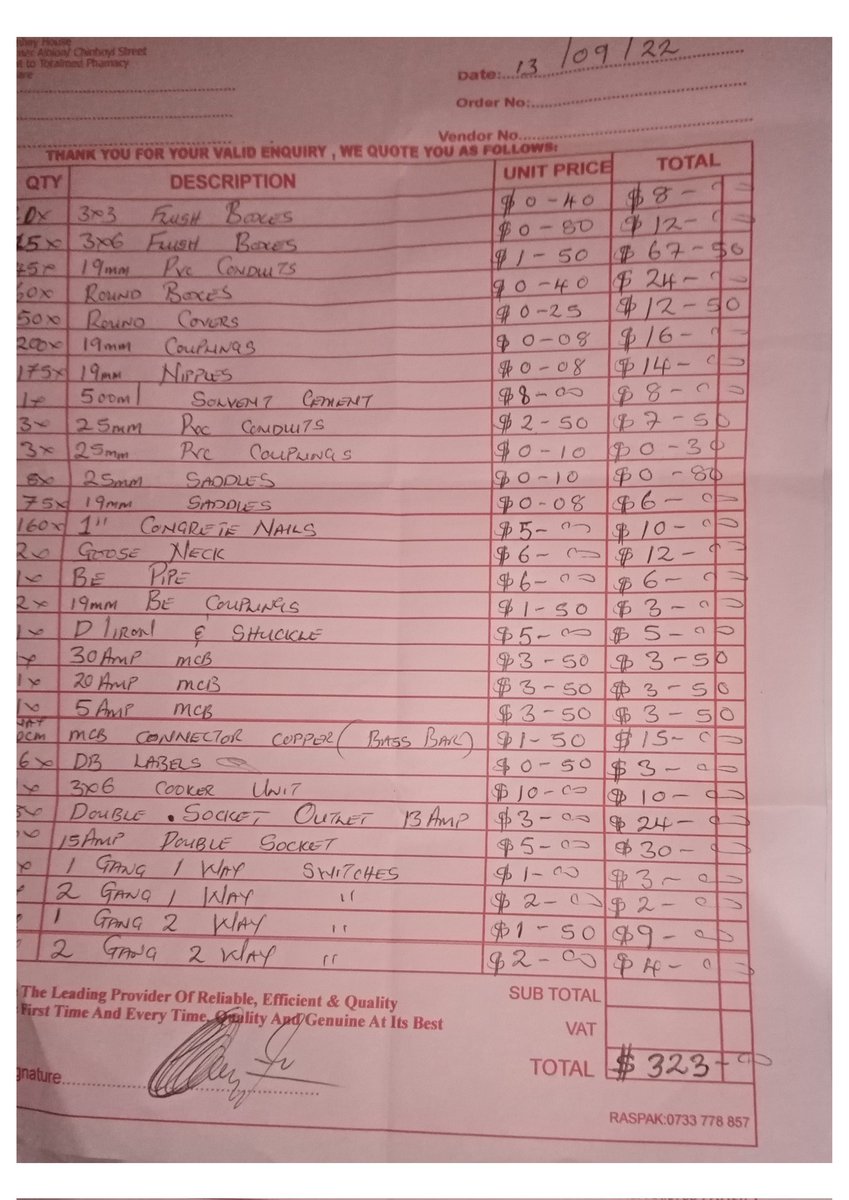 bay House
Albion/ Chinhoyi Street
t to Totalmed Phamacy
are
Date: 13/09/22
Order No:
Vendor No.
THANK YOU FOR YOUR VALID ENQUIRY , WE QUOTE YOU AS FOLLOWS:
QTY DESCRIPTION UNIT PRICE TOTAL
0x 3x3 FLUSH BOXES $0-40 $8-00
15x 3x6 FLUSH BOXES $0-80 $12-00
45x 19mm PVC CONDUITS $1-50 $67-50
60x ROUND BOXES $0-40 $24-00
50x ROUND COVERS $0-25 $12-50
200x 19mm COUPLINGS $0-08 $16-00
175x 19mm NIPPLES $0-08 $14-00
1x 500ml SOLVENT CEMENT $8-00 $8-00
3x 25mm PVC CONDUITS $2-50 $7-50
3x 25mm PVC COUPLINGS $0-10 $0-30
8x 25mm SADDLES $0-10 $0-80
75x 19mm SADDLES $0-08 $6-00
160x 1" CONGRETE NAILS $5-00 $10-00
2x GOOSE NECK $6-00 $12-00
1x BE PIPE $6-00 $6-00
2x 19mm BE COUPLINGS $1-50 $3-00
1x D/IRON & SHUCKLE $5-00 $5-00
x 30AMP MCB $3-50 $3-50
1x 20AMP MCB $3-50 $3-50
1x 5AMP MCB $3-50 $3-50
0CM MCB CONNECTOR COPPER (BASS BAR) $1-50 $15-00
6x DB LABELS $0-50 $3-00
x 3x6 COOKER UNIT $10-00 $10-00
x DOUBLE . SOCKET OUTLET 13AMP $3-00 $24-00
x 15AMP DOUBLE SOCKET $5-00 $30-00
x 1 GANG 1 WAY SWITCHES $1-00 $3-00
2 GANG 1 WAY " $2-00 $2-00
1 GANG 2 WAY " $1-50 $9-00
2 GANG 2 WAY " $2-00 $4-00
The Leading Provider Of Reliable, Efficient & Quality
First Time And Every Time, Quality And Genuine At Its Best
SUB TOTAL
VAT
TOTAL $323-00
gnature
RASPAK:0733 778 857